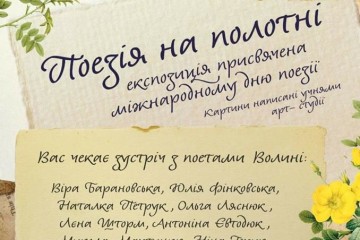 Поезія на полотні
експозиція присвячена
міжнародному дню поезії
Картини написані учнями
арт- студії
Вас чекає зустріч з поетами Волині:
Віра Барановська, Юлія Фінковська,
Наталка Петрук, Ольга Ляснюк,
Лєна Шторм, Антоніна Євтодюк,